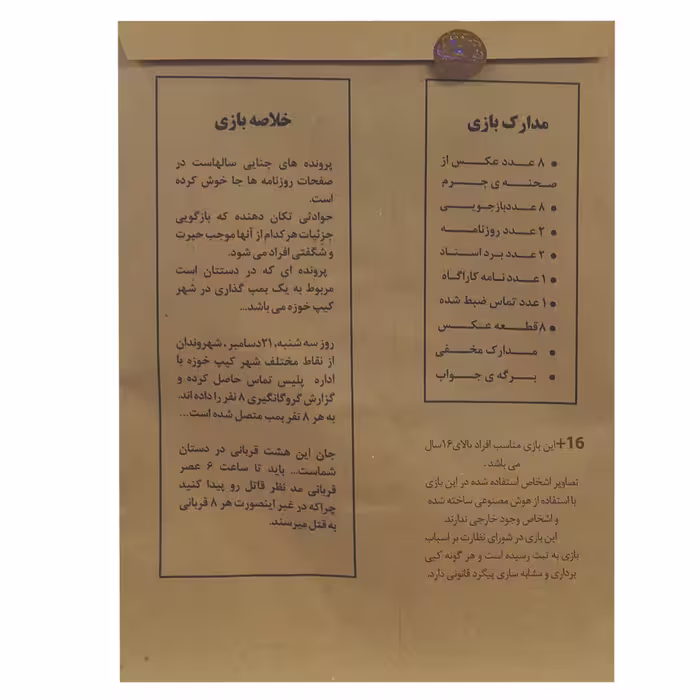 مدارک بازی
• ۸ عدد عکس از
صحنه ی جرم
• ۸ عددبازجویی
• ۲ عدد روزنامه
• ۲ عدد برد اسناد
• ۱ عددنامه کاراگاه
• ۱ عدد تماس ضبط شده
• ۸ قطعه عکس
• مدارک مخفی
• برگه ی جواب
+16 این بازی مناسب افراد بالای ۱۶سال
می باشد .
تصاویر اشخاص استفاده شده در این بازی
با استفاده از هوش مصنوعی ساخته شده
و اشخاص وجود خارجی ندارند
این بازی در شورای نظارت بر اسباب
بازی به ثبت رسیده است و هر گونه کپی
برداری و مشابه سازی پیگرد قانونی دارد.
خلاصه بازی
پرونده های جنایی سالهاست در
صفحات روزنامه ها جا خوش کرده
است.
حوادثی تکان دهنده که بازگویی
جزئیات هرکدام از آنها موجب حیرت
و شگفتی افراد می شود.
پرونده ای که در دستتان است
مربوط به یک بمب گذاری در شهر
کیپ خوزه می باشد...
روز سه شنبه، ۲۱دسامبر، شهروندان
از نقاط مختلف شهر کیپ خوزه با
اداره پلیس تماس حاصل کرده و
گزارش گروگانگیری ۸ نفر را داده اند.
به هر ۸ نفر بمب متصل شده است...
جان این هشت قربانی در دستان
شماست... باید تا ساعت ۶ عصر
قربانی مد نظر قاتل رو پیدا کنید
چراکه در غیر اینصورت هر ۸ قربانی
به قتل میرسند.